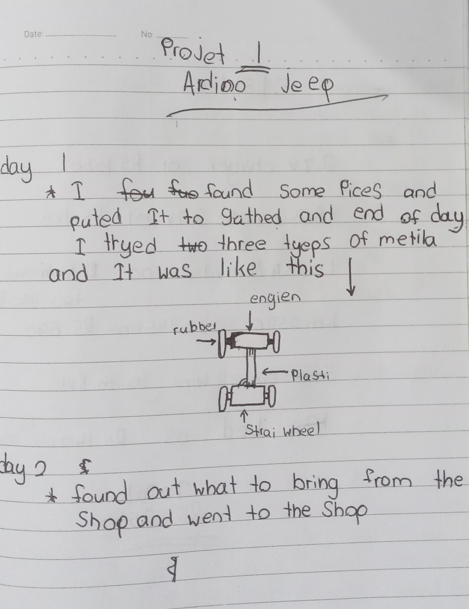 Date
No
Projet 1
Ardioo Jeep
day 1
* I fou fuo found some Pices and
puted It to gathed and end of day
I tryed two three tyeps of metila
and It was like this
engien
rubber
Plasti
Strai wheel
day 2
* found out what to bring from the
Shop and went to the Shop